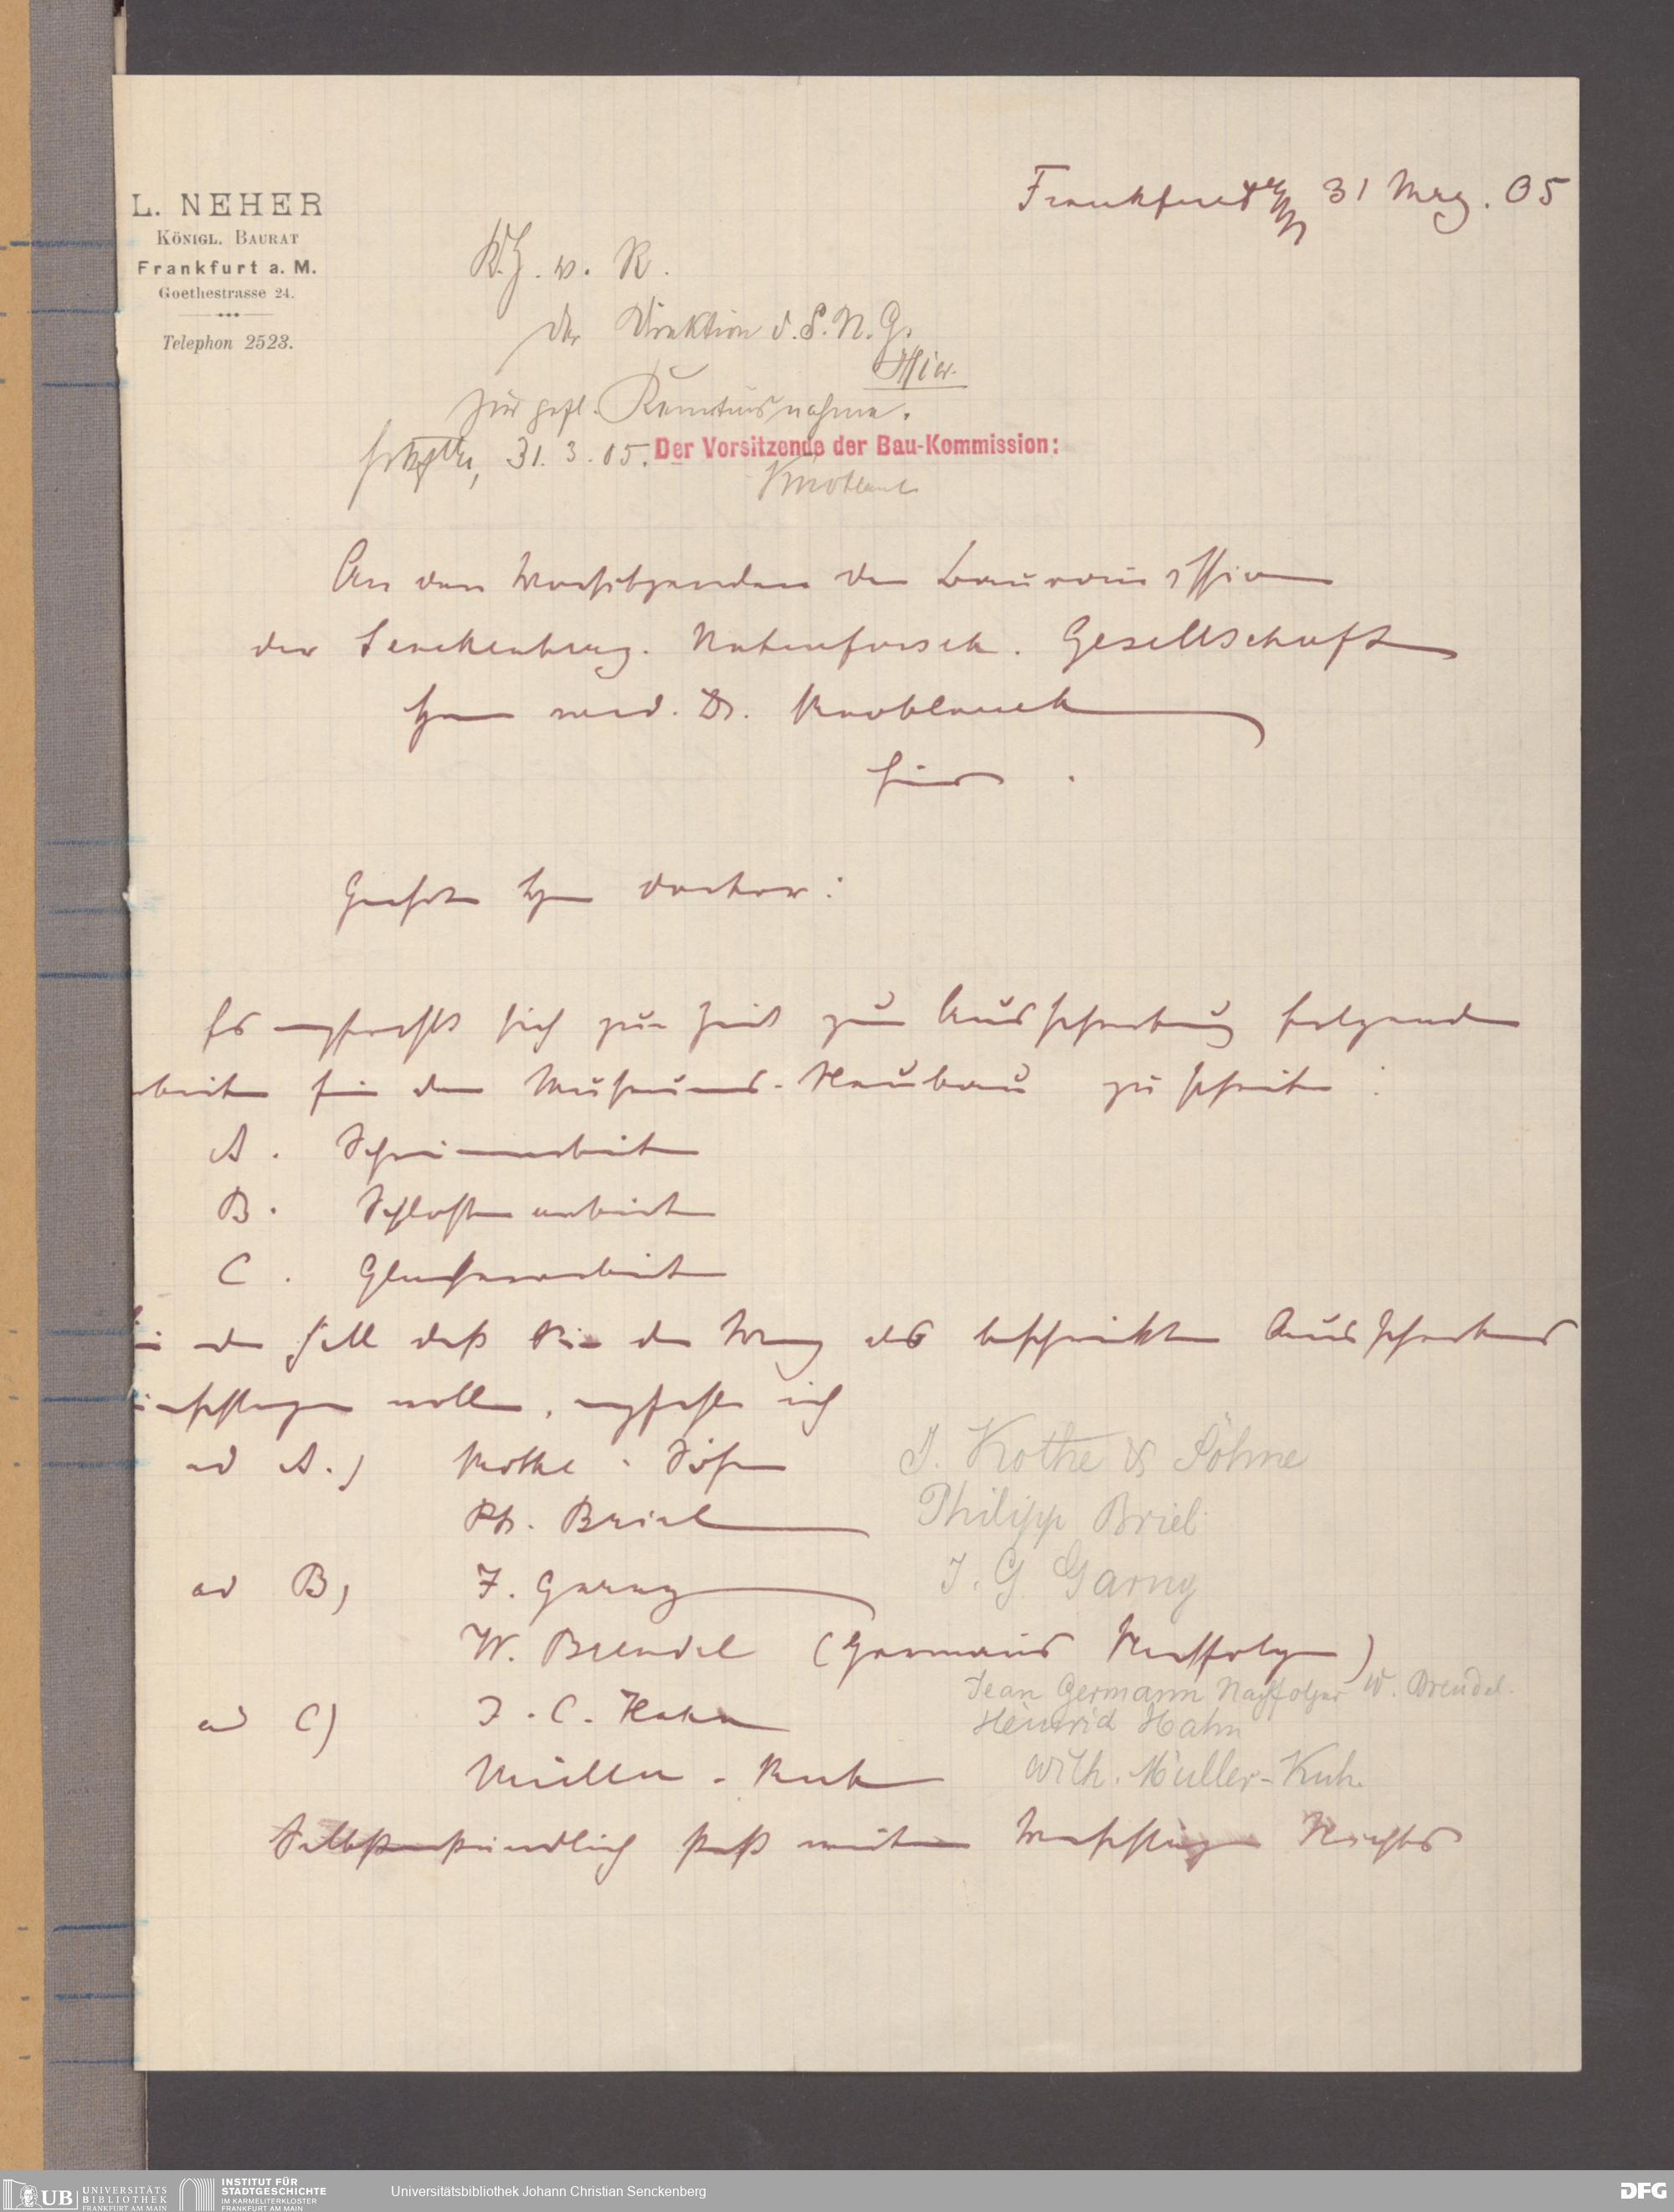 L. NEHER
KÖNIGL. BAURAT
Frankfurt a. M.
Goethestrasse 24.
Telephon 2523.
Frankfurt a/M 31 Mrz. 05
K. H. w. R.
der Direktion d. S. N. G.
Hier.
zur gefl. Kenntnisnahme.
31. 3. 05. Der Vorsitzende der Bau-Kommission:
Knoblauch
An den Vorsitzenden der Baukommission
der Senckenberg. Naturforsch. Gesellschaft
Herrn med. Dr. Knoblauch
hier.
Geehrter Herr Doctor:
Es empfiehlt sich zur Zeit zur Ausschreibung folgender
Arbeiten für den Museums-Neubau zu schreiten:
A. Schreinerarbeiten
B. Schlosserarbeiten
C. Glaserarbeiten
den Fall daß Sie den Weg der beschränkten Ausschreibung
einschlagen wollen, empfehle ich
ad A.) Kothe & Söhne J. Kothe & Söhne
Ph. Briel Philipp Briel
ad B) F. Garny J. G. Garny
W. Brendel (Germanns Nachfolger)
Jean Germann Nachfolger W. Brendel.
ad C) J. C. Hahn Heinrich Hahn
Müller-Kuh Wilh. Müller-Kuh.
Selbstverständlich steht weiteren Vorschlägen Nichts
UB UNIVERSITÄTS
BIBLIOTHEK
FRANKFURT AM MAIN
INSTITUT FÜR
STADTGESCHICHTE
IM KARMELITERKLOSTER
FRANKFURT AM MAIN
Universitätsbibliothek Johann Christian Senckenberg
DFG